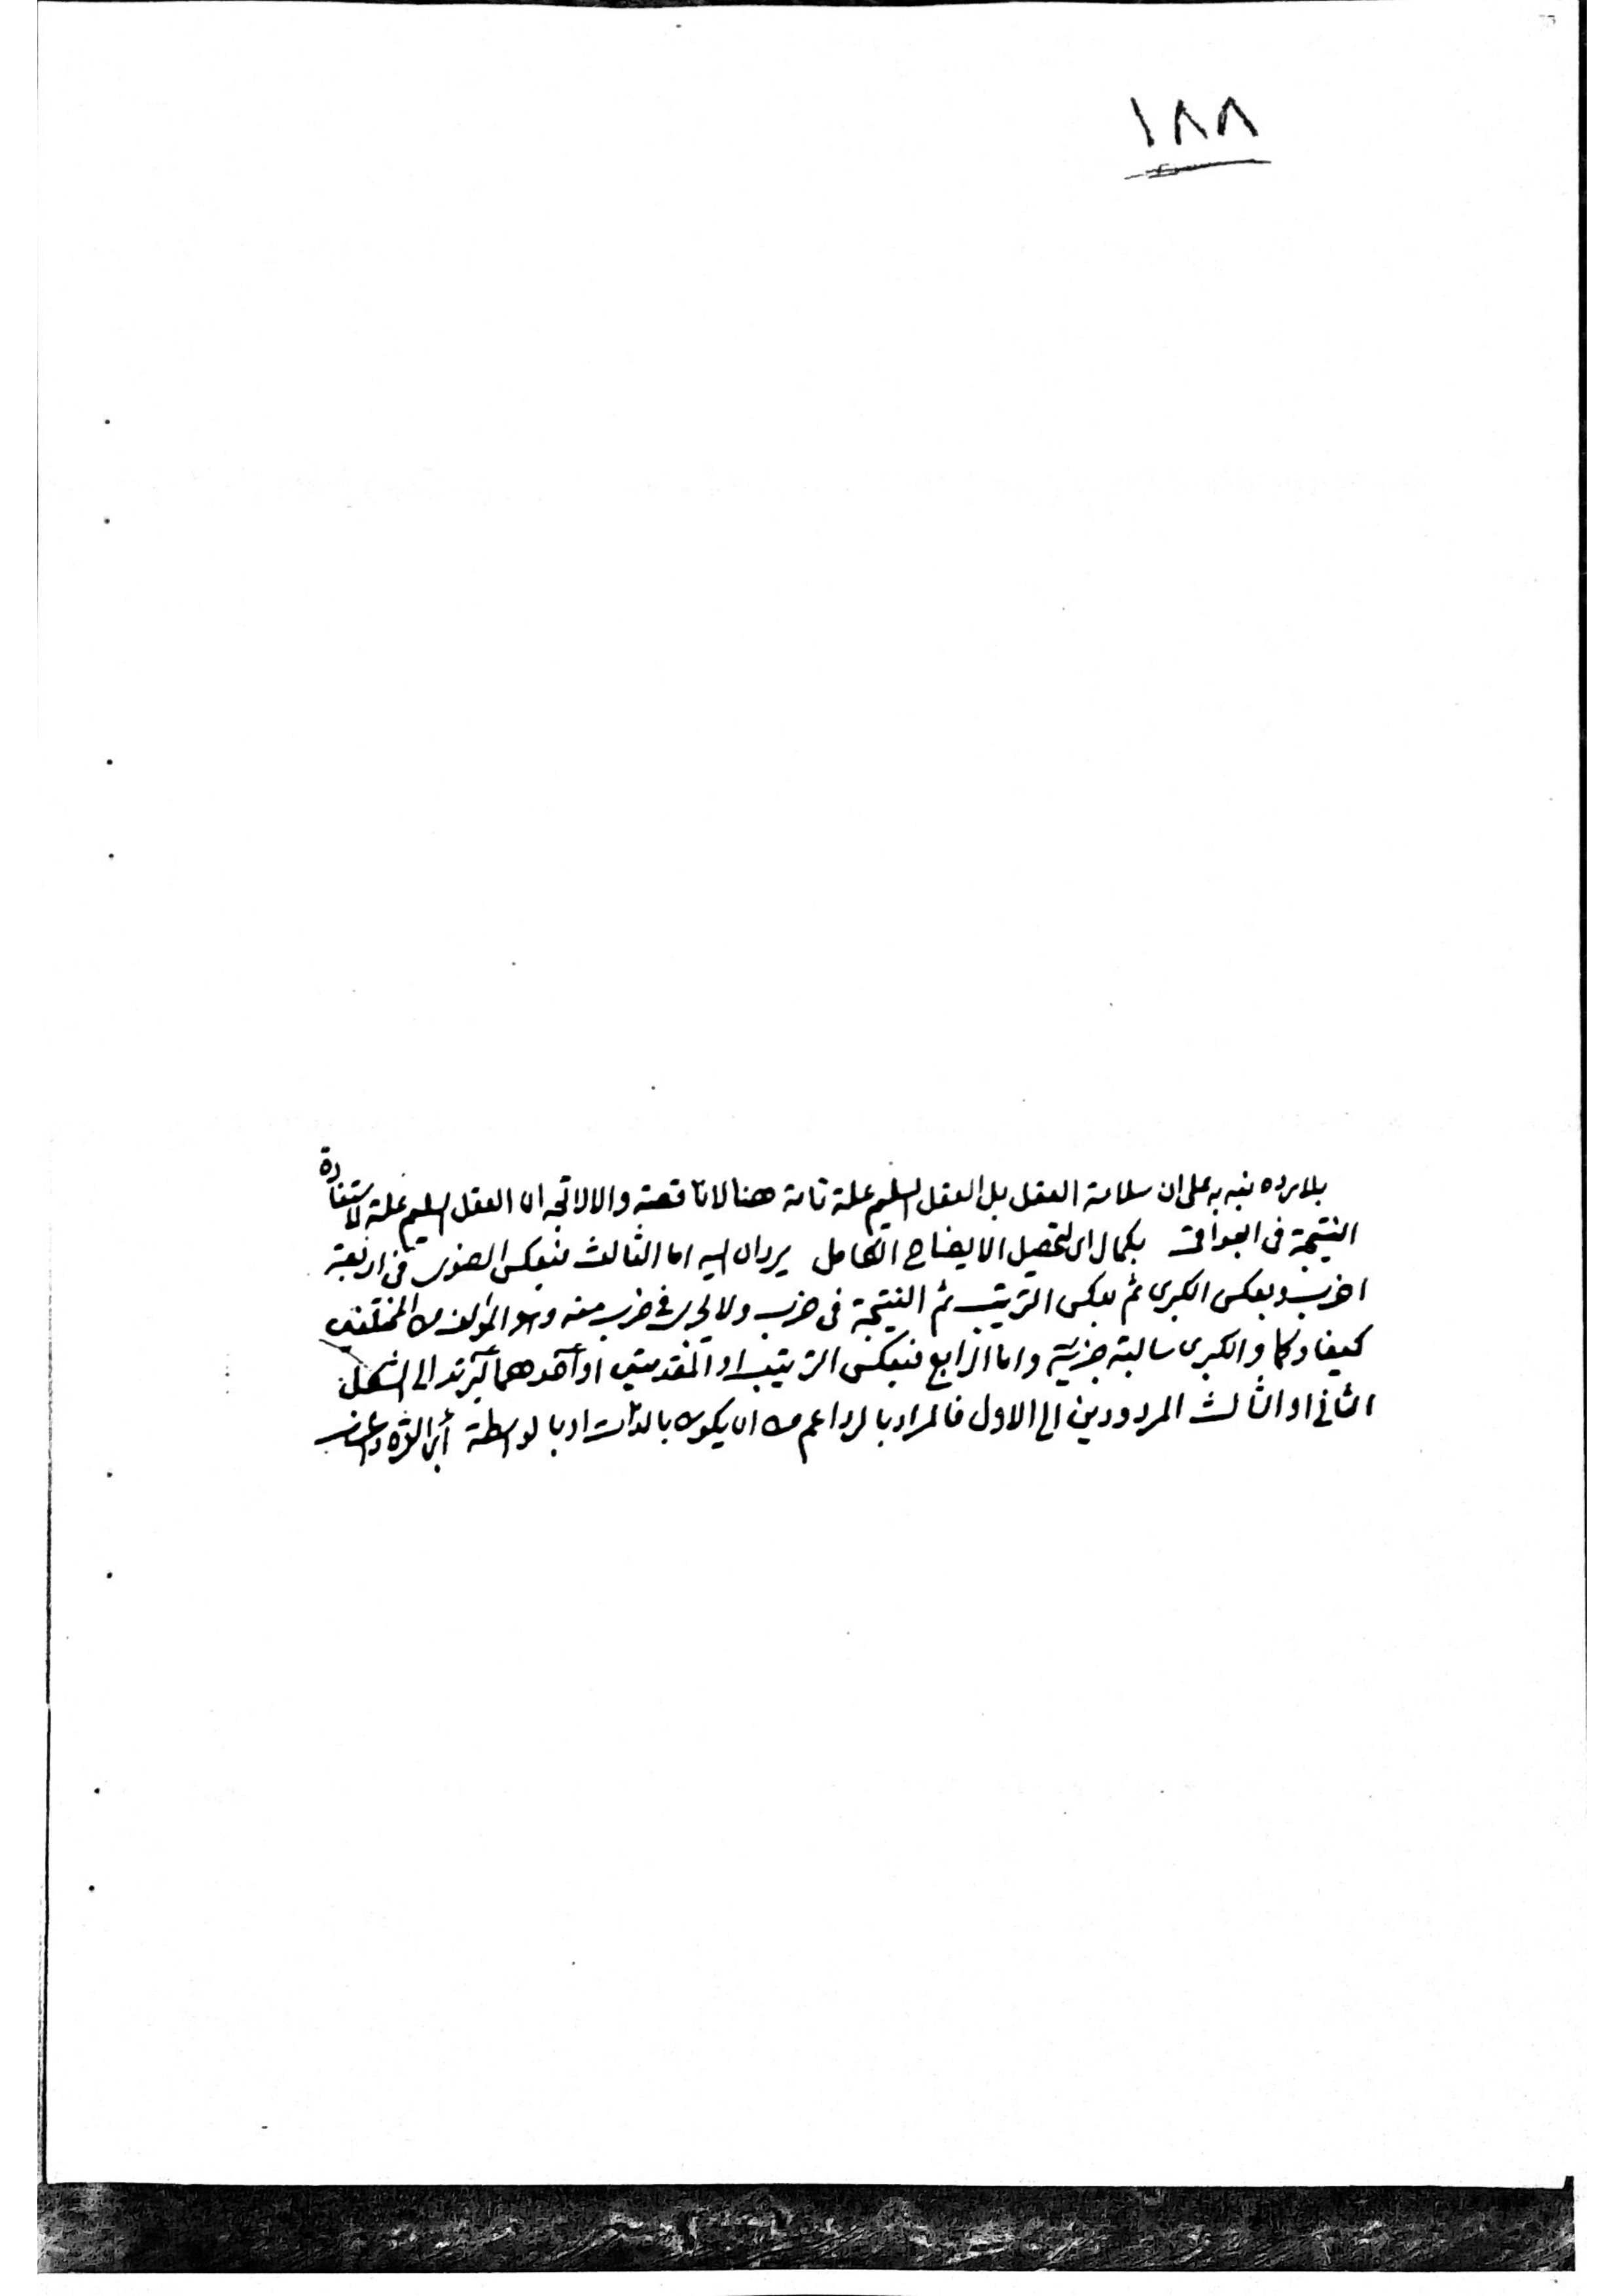 ١٨٨
بلا رده نبه به على ان سلامة العقل بل العقل السليم علة تامة هنا لا ناقصة والا لاتجه ان العقل السليم علة لاستفادة
النتيجة في البواقى بكمال اى لتحصيل الايضاح الكامل يردان اليه اما الثالث فبعكس الصغرى في اربعة
اضرب وبعكس الكبرى ثم بعكس الترتيب ثم النتيجة في ضرب ولا يجرى في ضرب منه وهو المؤلف من المختلفتين
كيفا وكما والكبرى سالبة جزئية واما الرابع فبعكس الترتيب او المقدمتين او احدهما ليرتد الى الشكل
الثاني او الثالث المردودين الى الاول فالمراد بالرد اعم من ان يكون بالذات او بالواسطة